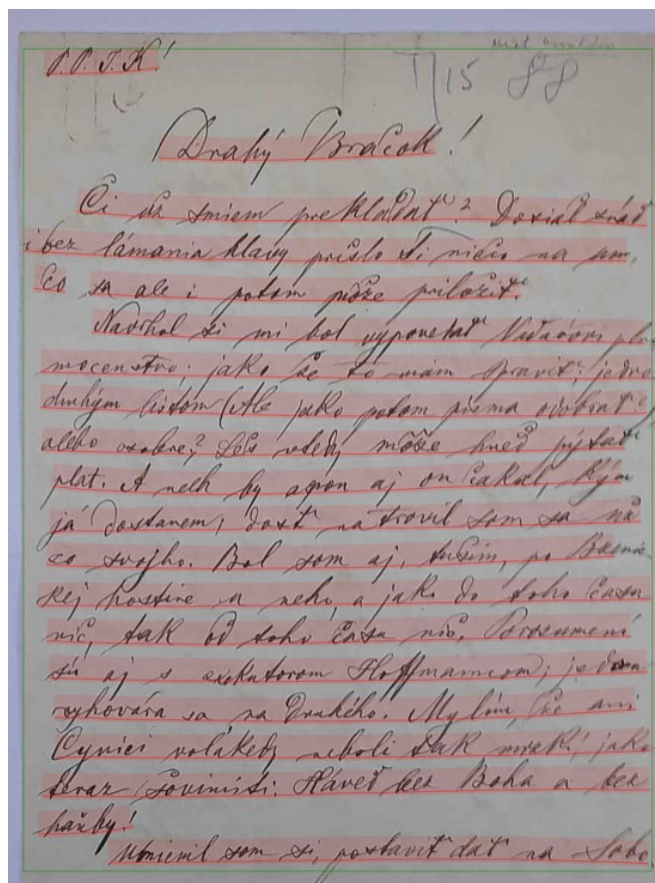 P. P. T. K!
T/15 88
Drahý Bračok!
Či už smiem prekladať? Dosiaľ snáď
i bez lámania hlavy prišlo Ti niečo na um,
čo sa ale i potom môže priložiť.
Navrhol si mi bol vypovedať plno
mocenstvo; jako že to mám spraviť; jedno
duchým listom (Ale jako potom písma odobrať?
alebo osobne? Leš vtedy môže hneď pýtať
plat. A nech by aspon aj on čakal, kým
já dostanem; dosť natrovil som sa už
zo svojho. Bol som aj, tuším, po
kej hostine u neho, a jako do toho času
nič, tak od toho času nič. Porozumení
sú aj s exekutorom Hoffmannom; jeden
vyhovára sa na druhého. Myslím, že ani
Cynici voľakedy neboli tak mrzkí, jako
teraz šovinisti. Háveď bez Boha a bez
hanby!
Umienil som si, postaviť dať na